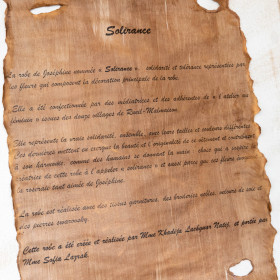 Solirance
La robe de Joséphine nommée « Solirance », solidarité et tolérance représentées par
les fleurs qui composent la décoration principale de la robe.
Elle a été confectionnée par des médiatrices et des adhérentes de « l'atelier au
féminin » issues des douze villages de Rueil-Malmaison.
Elle représente la vraie solidarité, entendu, avec leurs tailles et couleurs différentes
Ces dernières mettent en exergue la beauté et l'originalité de ce vêtement et contribuent
à son harmonie, comme des humaines se donnant la main, choix qui a inspiré la
créatrice de cette robe à l'appeler « solirance » et aussi parce que les fleurs
la roseraie tant aimée de Joséphine.
La robe est réalisée avec des tissus garnitures, des broderies voiles, velours de soie et
des pierres swarovsky.
Cette robe a été créée et réalisée par Mme Khadija Lashgnar Natej, et portée par
Mme Sofia Lazrak.